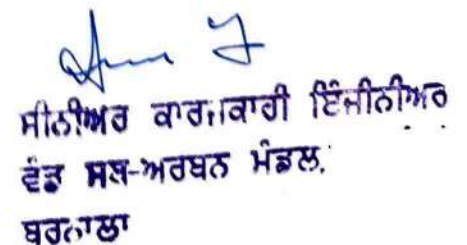 ਸੀਨੀਅਰ ਕਾਰਜਕਾਰੀ ਇੰਜੀਨੀਅਰ
ਵੰਡ ਸਬ-ਅਰਬਨ ਮੰਡਲ,
ਬਰਨਾਲਾ